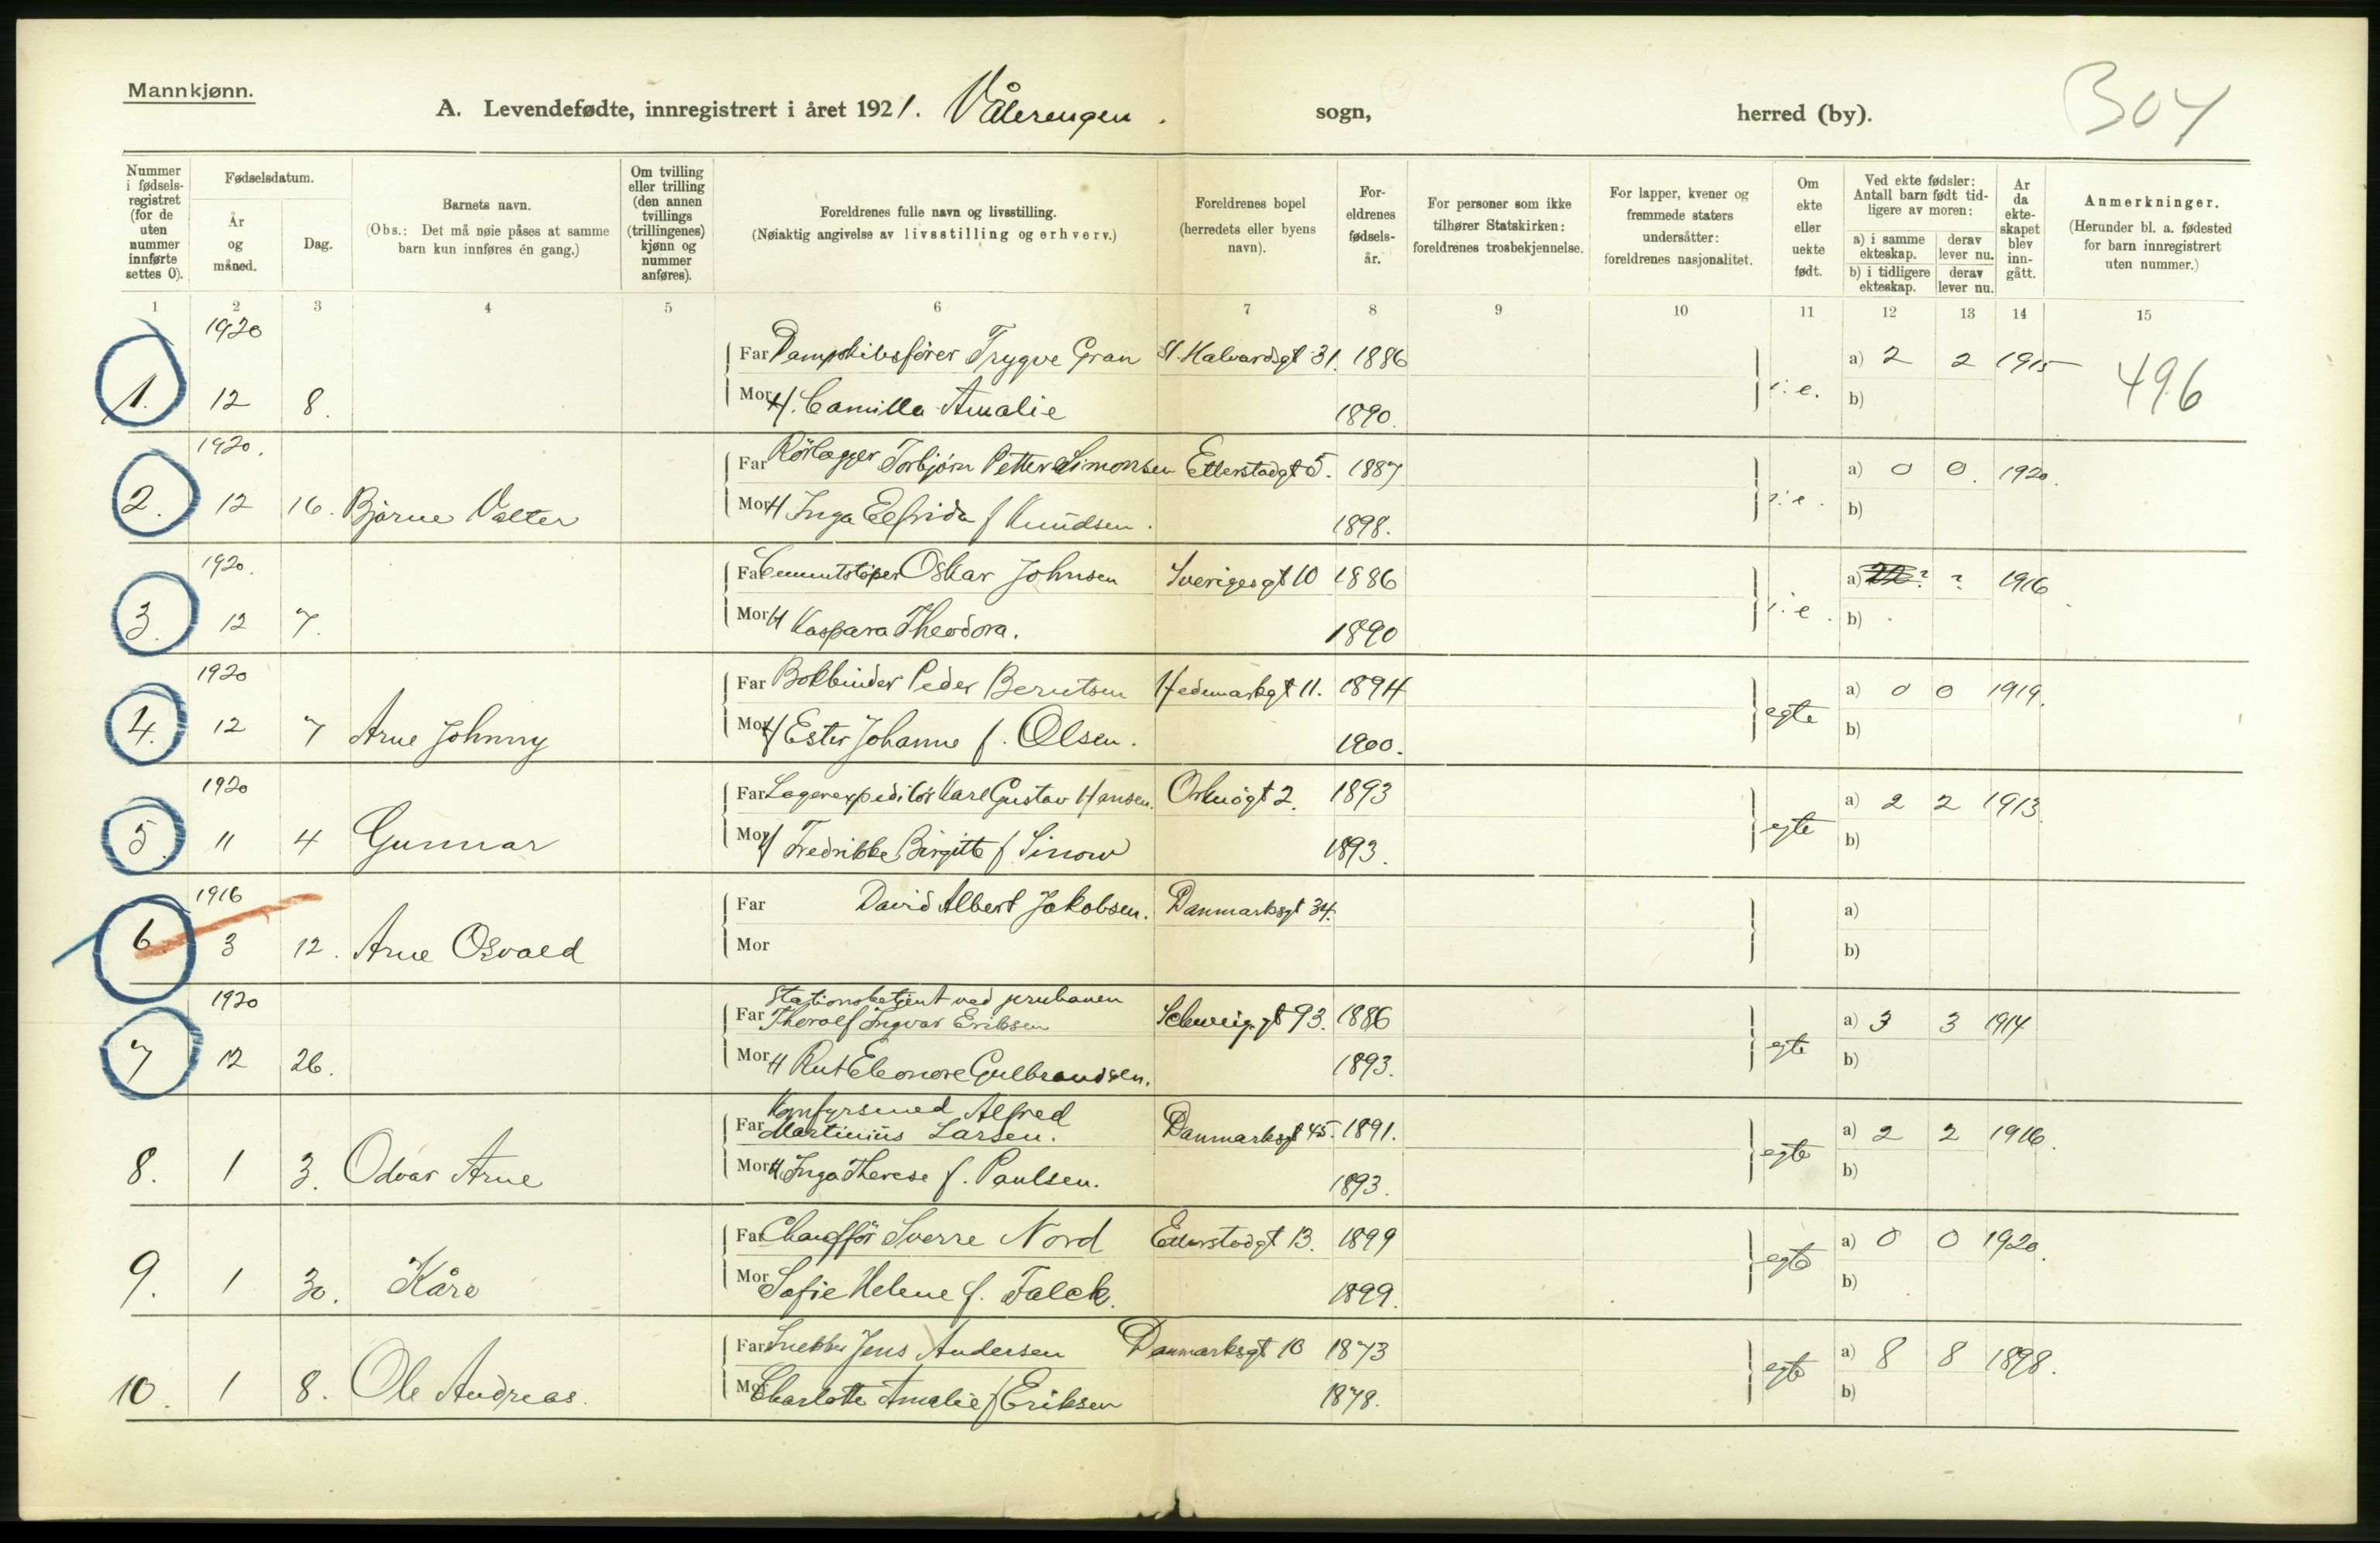 Mannkjønn.
A. Levendefødte, innregistrert i året 1921. Vålerengen. sogn, herred (by). 304
Nummer i fødsels-registret (for de uten nummer innførte settes 0).
Fødselsdatum.
År og måned.
Dag.
Barnets navn.
(Obs.: Det må nøie påses at samme barn kun innføres én gang.)
Om tvilling eller trilling (den annen tvillings (trillingenes) kjønn og nummer anføres).
Foreldrenes fulle navn og livsstilling.
(Nøiaktig angivelse av livsstilling og erhverv.)
Foreldrenes bopel
(herredets eller byens navn).
For-eldrenes fødsels-år.
For personer som ikke tilhører Statskirken: foreldrenes trosbekjennelse.
For lapper, kvener og fremmede staters undersåtter: foreldrenes nasjonalitet.
Om ekte eller uekte født.
Ved ekte fødsler: Antall barn født tid-ligere av moren:
a) i samme ekteskap.
derav lever nu.
b) i tidligere ekteskap.
derav lever nu.
År da ekte-skapet blev inn-gått.
Anmerkninger.
(Herunder bl. a. fødested for barn innregistrert uten nummer.)
1 2 3 4 5 6 7 8 9 10 11 12 13 14 15
1920
Far Dampskibsfører Trygve Gran St. Halvardsgt 31. 1886 a) 2 2 1915
1. 12 8. Mor H. Camilla Amalie 1890. i.e. b) 496
1920.
Far Rörlegger Torbjørn Petter Simonsen Etterstadgt 5. 1887 a) 0 0. 1920.
2. 12 16. Bjarne Valter Mor H Inga Elfrida f Knudsen. 1898. i.e. b)
1920.
Far Cementstöper Oskar Johnsen Sverigesgt 10 1886 a) ? ? 1916
3. 12 7. Mor H Kaspara Theodora. 1890 i.e. b)
1920
Far Bokbinder Peder Berntsen Hedemarksgt 11. 1894 a) 0 0 1919.
4. 12 7 Arne Johnny Mor H Ester Johanne f. Olsen. 1900. egte b)
1920
Far Lagerexpeditör Karl Gustav Hansen. Orknögt 2. 1893 a) 2 2 1913.
5. 11 4 Gunnar Mor H Fredrikke Birgitte f. Sinow 1893. egte b)
1916
Far David Albert Jakobsen. Danmarksgt 34. a)
6 3 12. Arne Osvald Mor b)
1920 Stationsbetjent ved jernbanen
Far Thoralf Ingvar Eriksen Schweigg.gt 93. 1886 a) 3 3 1914
7 12 26. Mor H Rut Eleonore Gulbrandsen. 1893. egte b)
Komfyrsmed Alfred
Far Martinius Larsen. Danmarksgt 45. 1891. a) 2 2 1916.
8. 1 3. Odvar Arne Mor H Inga Therese f. Paulsen. 1893. egte b)
Far Chaufför Sverre Nord Etterstadgt 13. 1899 a) 0 0 1920.
9. 1 30. Kåre Mor Sofie Helene f. Falck. 1899. egte b)
Far Snekker Jens Andersen Danmarksgt 10 1873 a) 8 8 1898.
10. 1 8. Ole Andreas. Mor Charlotte Amalie f Eriksen 1878. egte b)